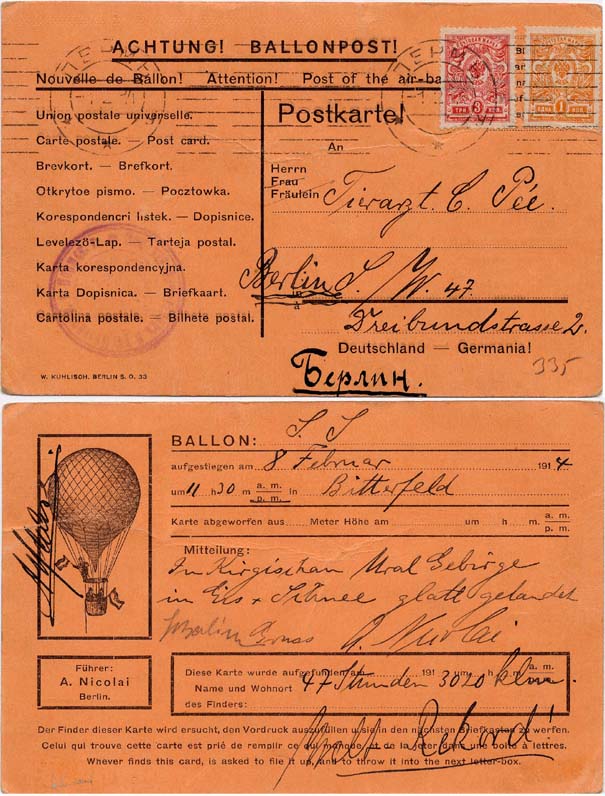 ACHTUNG! BALLONPOST!
Nouvelle de Ballon! Attention! Post of the air-ba
Union postale universelle.
Carte postale. — Post card.
Brevkort. — Brefkort.
Otkrytoe pismo. — Pocztowka.
Korespondencri listek. — Dopisnice.
Levelezö-Lap. — Tarteja postal.
Karta korespondencyjna.
Karta Dopisnica. — Briefkaart.
Cartolina postale. — Bilhete postal.
W. KUHLISCH. BERLIN S. O. 33
3
ТРИ КОП
1
ОДНА КОП
Postkarte!
An
Herrn
Frau
Fräulein
Tierarzt. C. Pée.
Berlin S./W. 47.
Dreibundstrasse 2.
Deutschland — Germania!
335
Берлин.
BALLON: S. S
aufgestiegen am 8 Februar 1914
um 11 h 30 m a. m. p. m. in Bitterfeld
Karte abgeworfen aus Meter Höhe am um h m a. m. p. m.
Mitteilung:
In Kirgischan Ural Gebirge
in Eis + Schnee glatt gelandet
Gruss A. Nicolai
Führer:
A. Nicolai
Berlin.
Diese Karte wurde aufgefunden am 191 um h m a. m. p. m.
Name und Wohnort
des Finders:
47 Stunden 3020 klm.
Rekord!
Der Finder dieser Karte wird ersucht, den Vordruck auszufüllen u. sie in den nächsten Briefkasten zu werfen.
Celui qui trouve cette carte est prié de remplir ce qui manque et de la jeter dans une boîte à lettres.
Whever finds this card, is asked to file it up, and to throw it into the next letter-box.